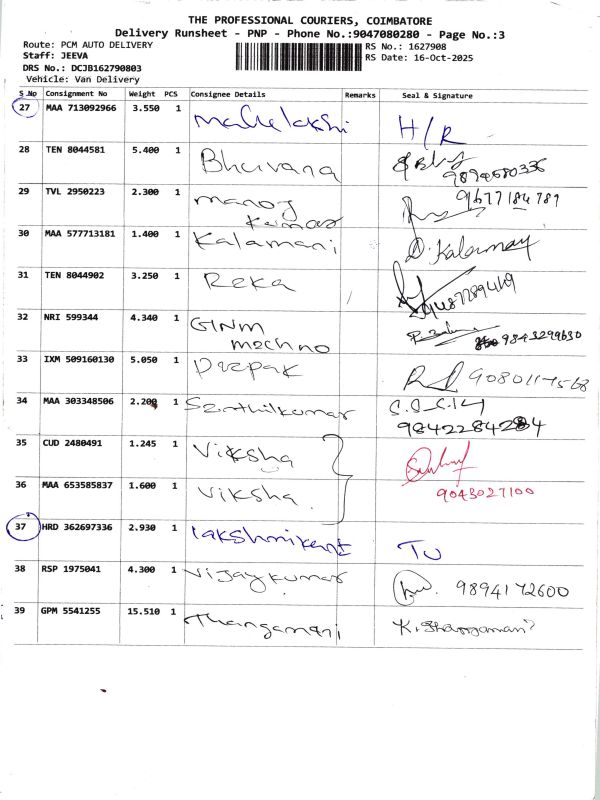 THE PROFESSIONAL COURIERS, COIMBATORE
Delivery Runsheet - PNP - Phone No.:9047080280 - Page No.:3
Route: PCM AUTO DELIVERY
RS No.: 1627908
Staff: JEEVA
RS Date: 16-Oct-2025
DRS No.: DCJB162790803
Vehicle: Van Delivery
S No Consignment No Weight PCS Consignee Details Remarks Seal & Signature
27 MAA 713092966 3.550 1 Mahelakshi H/R
28 TEN 8044581 5.400 1 Bhuvana
29 TVL 2950223 2.300 1 manoj kumar 9677184789
30 MAA 577713181 1.400 1 Kalamani
31 TEN 8044902 3.250 1 Reka
32 NRI 599344 4.340 1 GINM mechno 9843299630
33 IXM 509160130 5.050 1 Deepak
34 MAA 303348506 2.200 1 Senthilkumar
35 CUD 2480491 1.245 1 Viksha
36 MAA 653585837 1.600 1 Viksha 9043027100
37 HRD 362697336 2.930 1 lakshmikant
38 RSP 1975041 4.300 1 Vijaykumar 9894172600
39 GPM 5541255 15.510 1 Thangamani